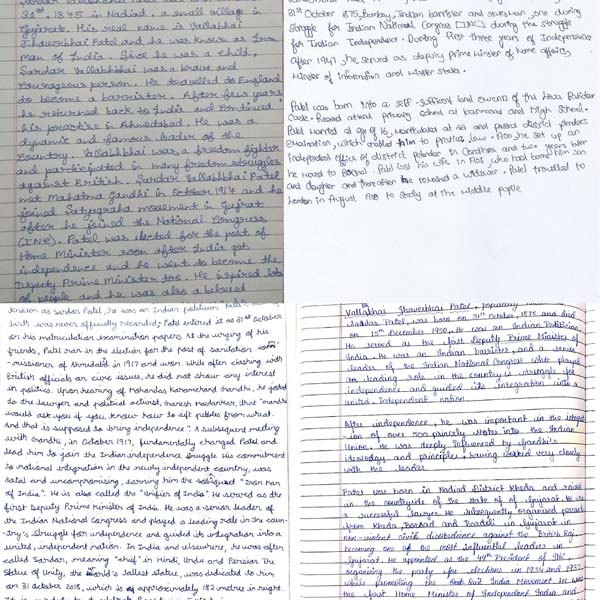 31st, 1875 in Nadiad, a small village in
Gujarat. His real name is Vallabhai
Jhaverbhai Patel and he was known as Iron
Man of India. Since he was a child,
Sardar Vallabhbhai was a brave and
courageous person. He travelled to England
to become a barrister. After few years
he returned back to India and continued
his practise in Ahmedabad. He was a
dynamic and famous leader of the
country. Vallabhbhai was a freedom fighter
and participated in many freedom struggles
against British. Sardar Vallabhbhai Patel
met Mahatma Gandhi in October 1917 and he
joined Satyagraha movement in Gujrat
after he joined the National Congress
(INC). Patel was elected for the post of
Home Minister soon after India got
independence and he went to become the
Deputy Prime Minister too. He inspired lots
of people and he was also a beloved
31st October 1875, Bombay, Indian barrister and statesman, one during
struggle for Indian National Congress [INC] during the struggle
for Indian Independence. During first three years of Independence
after 1947, he served as deputy prime minister of home affairs,
minister of information and minister states.
Patel was born into a self-sufficient land owners of the Leva Patidar
Caste. Reared attend primary school at karamsad and high school.
Patel married at age of 16, matriculated at 22 and passed district pleaders
examination, which enabled him to practise law. 1900, he set up an
independent office of district pleader in Godhra and two years later
he moved to Borsad. Patel lost his wife in 1908, who had borne him son
and daughter and thereafter he remained a widower. Patel travelled to
London in August 1910 to study at the Middle
known as Sardar Patel, he was an Indian politician. Patel's
birth was never officially recorded; Patel entered it as 31st october
on his matriculation examination papers. At the urging of his
friends, Patel ran in the election for the post of sanitation comm-
-missioner of Ahmedabad in 1917 and won. While often clashing with
British officials on civic issues, he did not show any interest
in politics. Upon hearing of Mohandas Karamchand Gandhi, he joked
to the lawyer and political activist, Ganesh Mavlankar, that "Gandhi
would ask you if you know how to sift pebbles from wheat.
And that is supposed to bring independence". A subsequent meeting
with Gandhi, in October 1917, fundamentally changed Patel and
lead him to join the Indian independence struggle. His commitment
to national integration in the newly independent country, was
total and uncompromising, earning him the sobriquet "Iron Man
of India". He is also called the "Unifier of India". He served as the
first Deputy Prime Minister of India. He was a senior leader of
the Indian National Congress and played a leading role in the coun-
-try's struggle for independence and guided its integration into a
united, independent nation. In India and elsewhere, he was often
called Sardar, meaning "chief" in Hindi, Urdu and Persian. The
Statue of Unity, the world's tallest statue, was dedicated to him
on 31 October 2018, which is approximately 182 metres in height.
Vallabhai Jhaverbhai Patel, popularly
Sardar Patel, was born on 31st October, 1875 and died
on 15th December 1950. He was an Indian Politician.
He served as the first Deputy Prime Minister of
India. He was an Indian barrister, and a senior
leader of the Indian National Congress who played
an leading role in country's struggle for
independence and guided its integration into a
united independent nation.
After independence, he was important in the integr
-ion of over 500 princely states into the Indian
Union. He was deeply influenced by Gandhi's
ideology and principles, having worked very closely
with the leader.
Patel was born in Nadiad District Kheda and raised
in the countryside of the state of of Gujarat. He was
a successful lawyer. He subsequently organised peasants
from Kheda, Borsad and Bardoli in Gujarat in
non-violent civil disobedience against the British Raj,
becoming one of the most influential leaders in
Gujarat. He appointed as the 49th President of INC,
organising the party for elections in 1934 and 1937
while promoting the Quit India Movement. He was
the first Home Minister of Independent India and